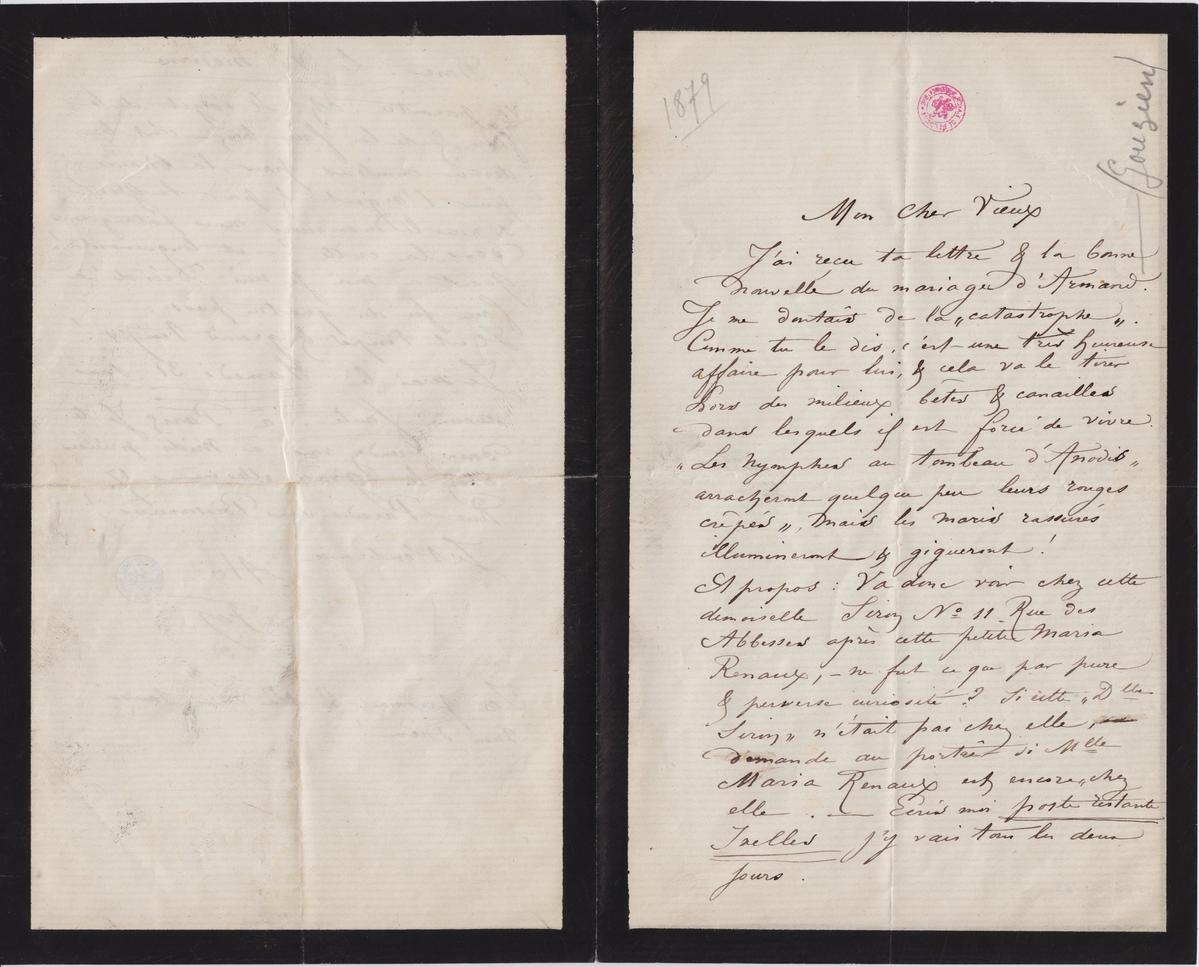 1879
Gouzien
Mon cher Vieux
J'ai reçu ta lettre & la bonne
nouvelle du mariage d'Armand.
Je me doutais de la „catastrophe„.
Comme tu le dis, c'est une très heureuse
affaire pour lui, & cela va le tirer
hors des milieux bêtes & canailles
dans lesquels il est forcé de vivre.
„Les nymphes au tombeau d'Anodis„
arracheront quelque peu leurs rouges
crêpés„, mais les maris rassurés
illumineront & gigueront !
A propos : Va donc voir chez cette
demoiselle Siroy No 11 Rue des
Abbesses après cette petite Maria
Renaux, – ne fut ce que par pure
& perverse curiosité ? Si cette „Dlle
Siroy„ n'était pas chez elle,
demande au portier si Mlle
Maria Renaux est encore „chez
elle . — Ecris moi poste restante
Ixelles j'y vais tous les deux
jours .